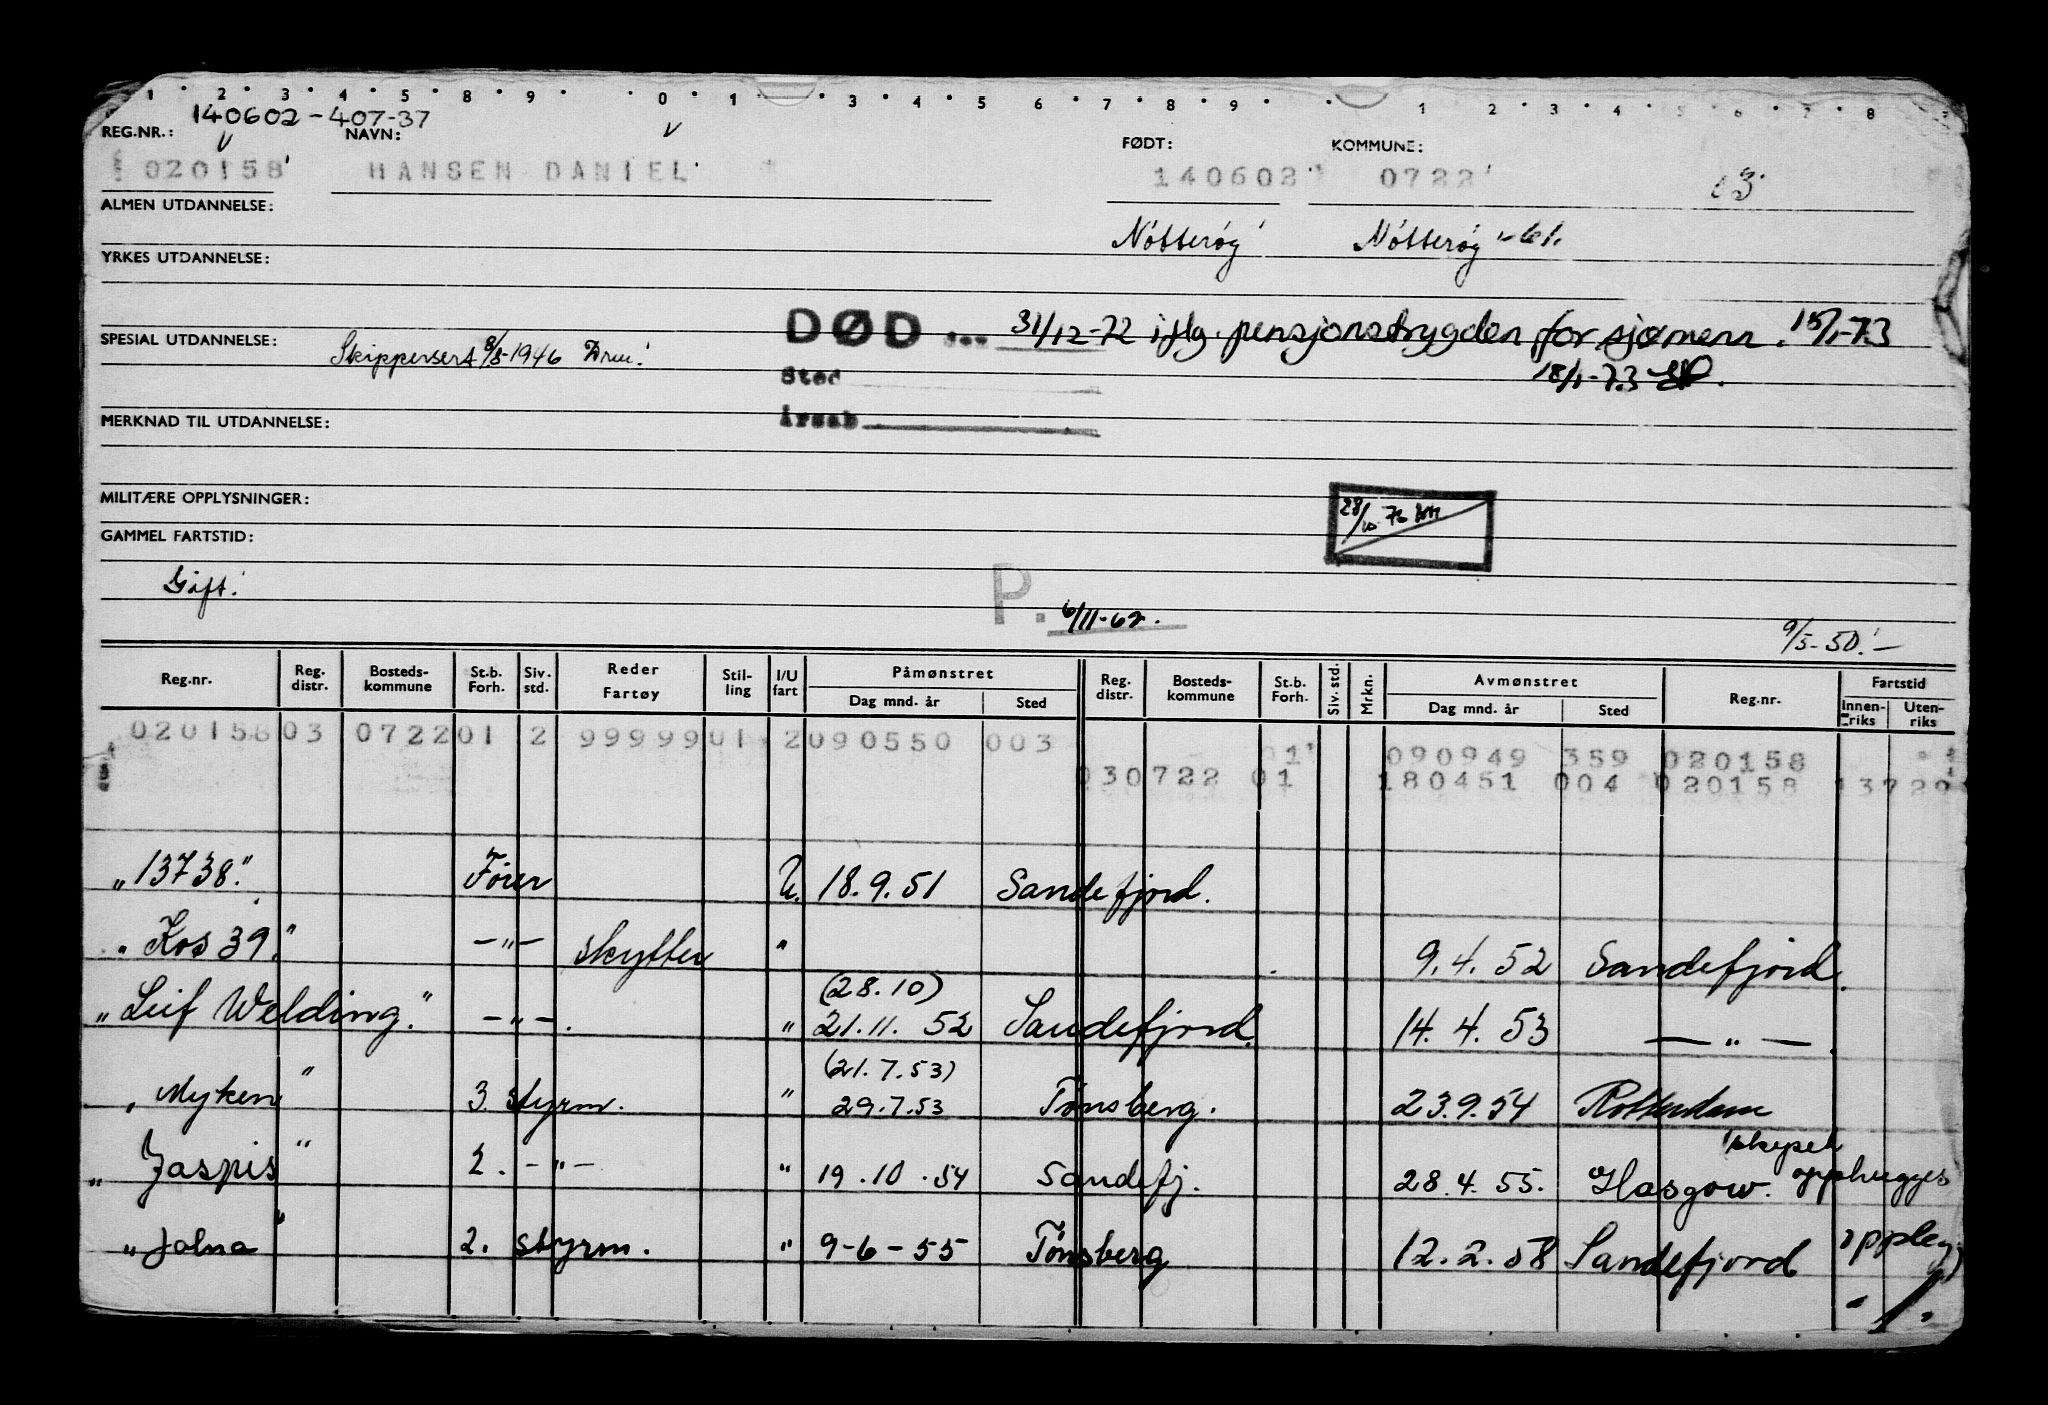 1 2 3 4 5 8 9 0 1 3 4 5 6 7 8 9 1 2 3 4 5 6 7 8
140602-407-37
REG.NR.: NAVN: FØDT: KOMMUNE:
020158 HANSEN DANIEL 140602 0722 3
ALMEN UTDANNELSE:
Nötterøy Nötterøy -61.
YRKES UTDANNELSE:
DØD... 31/12-72 iflg. pensjonstrygden for sjømenn. 15/1-73
SPESIAL UTDANNELSE: Skippersert 8/8-1946 Drm.
Sted 18/1-73
Årsak
MERKNAD TIL UTDANNELSE:
MILITÆRE OPPLYSNINGER:
GAMMEL FARTSTID:
Gift.
P. 6/11-62.
9/5-50.-
Reg.nr. Reg. distr. Bosteds-kommune St.b. Forh. Siv. std. Reder Fartøy Stil-ling I/U fart Påmønstret Dag mnd. år Sted Reg. distr. Bosteds-kommune St.b. Forh. Siv. std. Mrkn. Avmønstret Dag mnd. år Sted Reg.nr. Fartstid Innen-riks Uten-riks
020158 03 0722 01 2 99999 01 2 090550 003
1 090949 359 020158
030722 01 180451 004 020158 13729
„13738." Föier U. 18.9.51 Sandefjord.
„Kos 39." -„- skytter " 9.4.52 Sandefjord.
(28.10)
„Leif Welding." -„-. " 21.11.52 Sandefjord. 14.4.53 -„-.
(21.7.53)
„Myken" 3 styrm. " 29.7.53 Tønsberg. 23.9.54 Rotterdam
„Jaspis" 2. -„- " 19.10.54 Sandefj. 28.4.55. Glasgow. skipet opphugges
„Jalna" 2. styrm. " 9-6-55 Tønsberg 12.2.58 Sandefjord oppleg